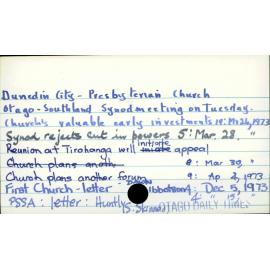 Dunedin City - Presbyterian Church
Otago-Southland Synod meeting on Tuesday.
Church's valuable early investments 19: Mr 26, 1973
Synod rejects cut in powers 5: Mar. 28, "
initiate
Reunion at Tirohanga will appeal
Church plans anoth 8: Mar 30, "
Church plans another forum 9: Ap 2, 1973
First Church - letter - Ibbotson 4: Dec 5, 1973
PSSA: letter: Huntly 4: " 15, "
OTAGO DAILY TIMES